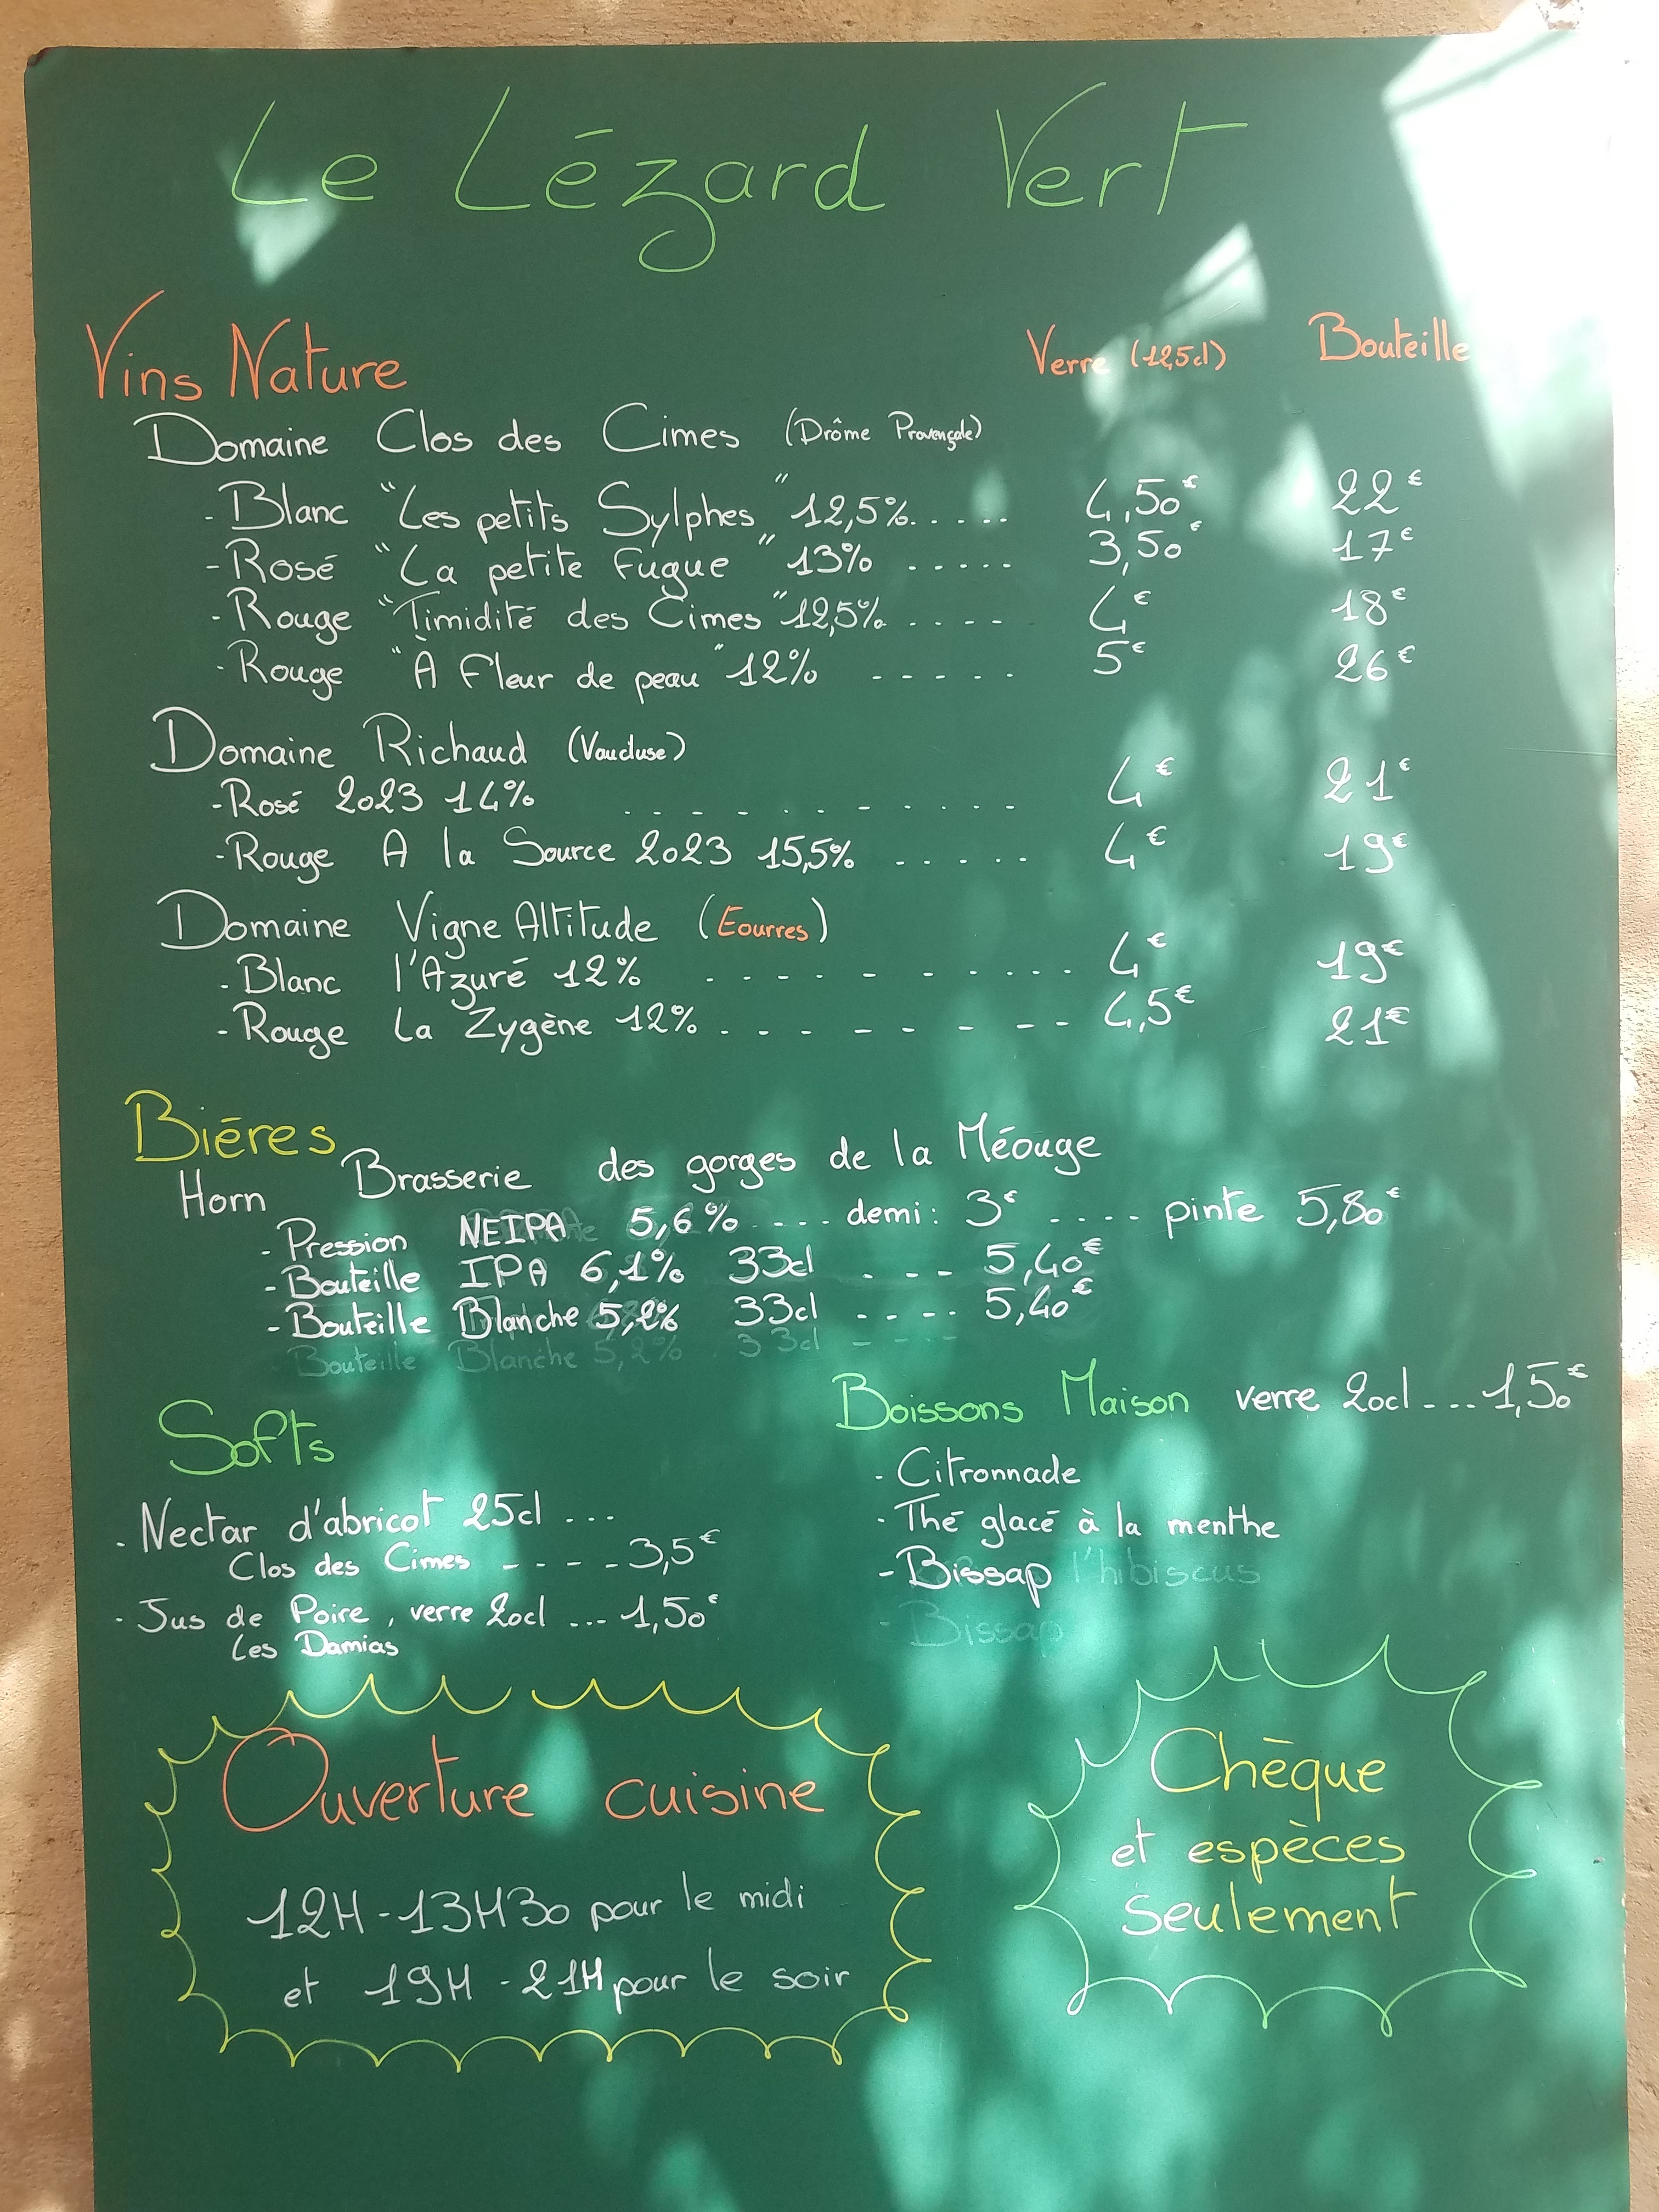 Le Lézard Vert
Vins Nature Verre (12,5cl) Bouteille
Domaine Clos des Cimes (Drôme Provençale)
- Blanc "Les petits Sylphes" 12,5% ..... 4,50€ 22€
- Rosé "La petite Fugue" 13% ..... 3,50€ 17€
- Rouge "Timidité des Cimes" 12,5% .... 4€ 18€
- Rouge "À Fleur de peau" 12% ----- 5€ 26€
Domaine Richaud (Vaucluse)
- Rosé 2023 14% ........... 4€ 21€
- Rouge A la Source 2023 15,5% ..... 4€ 19€
Domaine Vigne Altitude (Eourres)
- Blanc l'Azuré 12% .......... 4€ 19€
- Rouge La Zygène 12% . - - - - - - - 4,5€ 21€
Biéres
Horn Brasserie des gorges de la Méouge
- Pression NEIPA 5,6% .... demi: 3€ .... pinte 5,80€
- Bouteille IPA 6,1% 33cl . - - - 5,40€
- Bouteille Blanche 5,2% 33cl - - - - 5,40€
Bouteille Blanche 5,2% 33cl - - - -
Boissons Maison verre 20cl - - ... 1,50€
Softs
- Citronnade
- Thé glacé à la menthe
- Bissap l'hibiscus
- Bissap
. Nectar d'abricot 25cl ...
Clos des Cimes - - - - 3,5€
. Jus de Poire, verre 20cl ... 1,50€
Les Damias
Ouverture cuisine
12H-13H30 pour le midi
et 19H-21H pour le soir
Chèque
et espèces
seulement